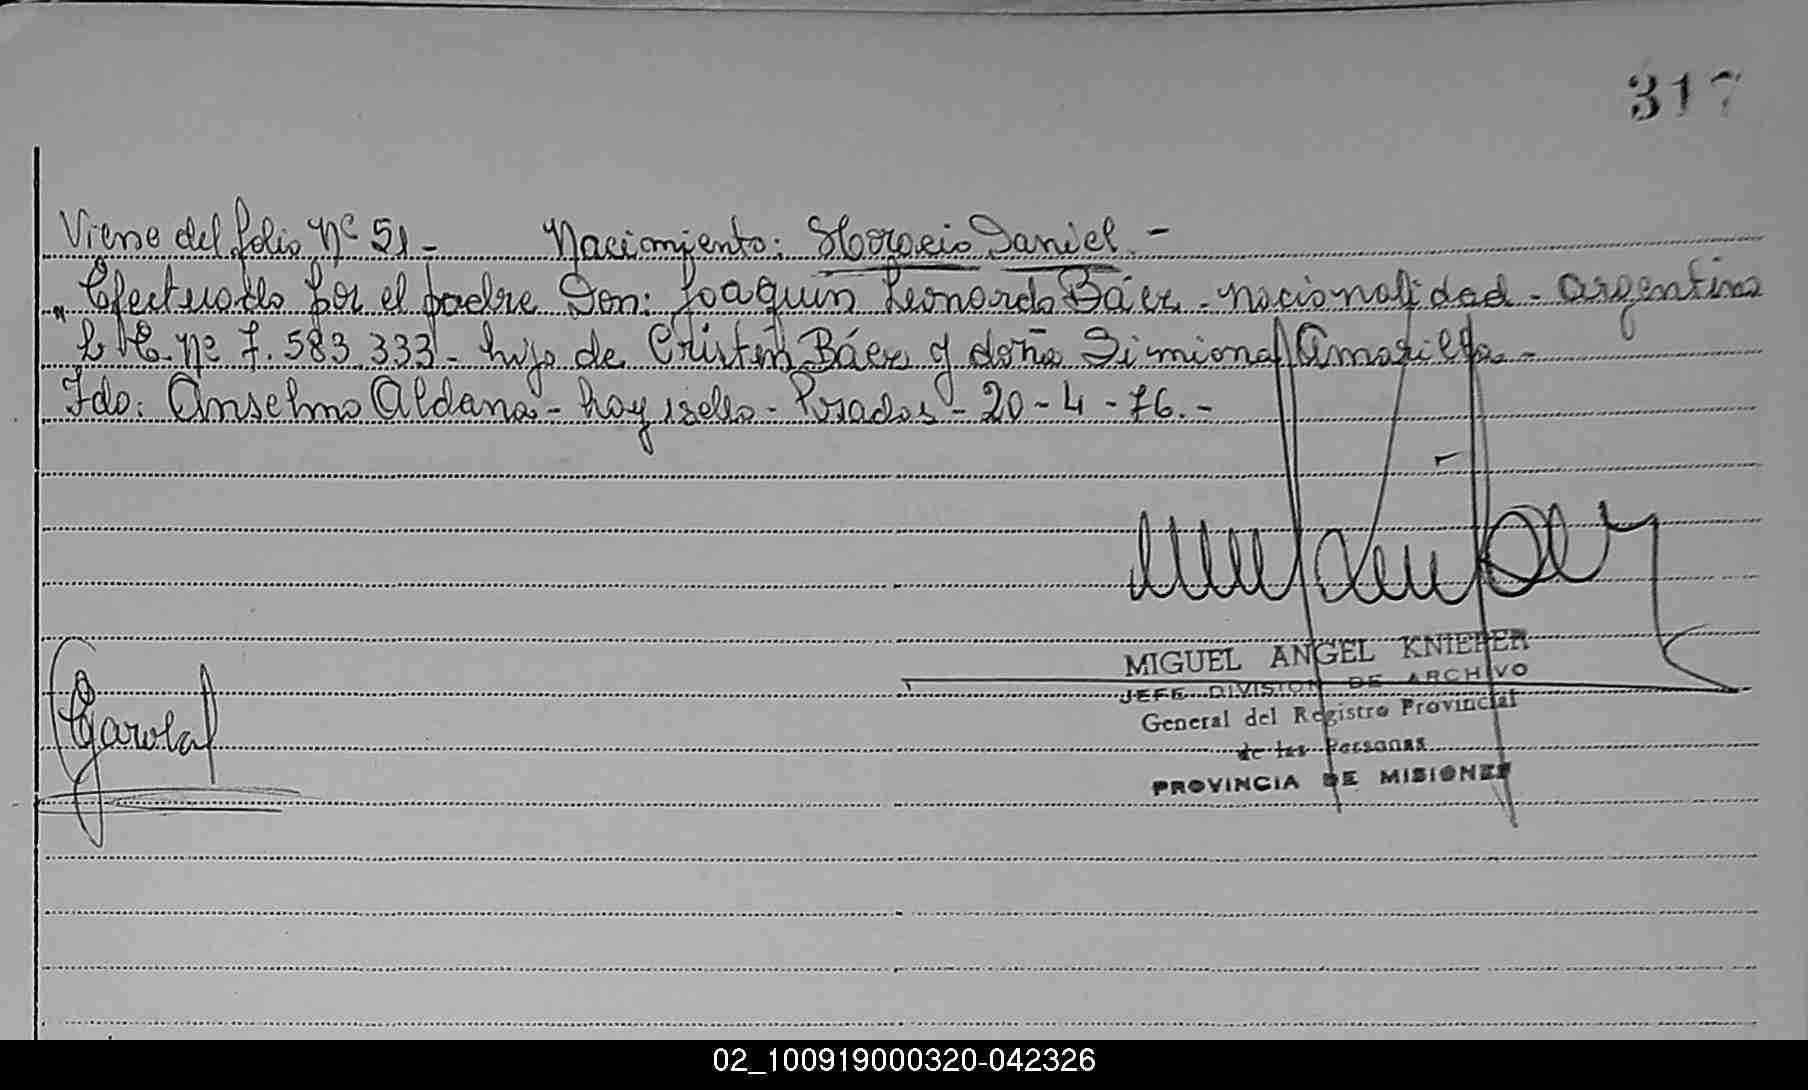 317
Viene del folio Nº 51 - Nacimiento: Horacio Daniel. -
" Efectuado por el padre Don: Joaquin Leonardo Báez - nacionalidad - argentino
L. E. Nº 7.583.333 - hijo de Cristin Báez y doña Simiona Amarilla -
Fdo: Anselmo Aldana - hay sello - Posadas - 20 - 4 - 76. -
MIGUEL ANGEL KNIEPER
JEFE DIVISION DE ARCHIVO
General del Registro Provincial
de las Personas
PROVINCIA DE MISIONES
02_100919000320-042326